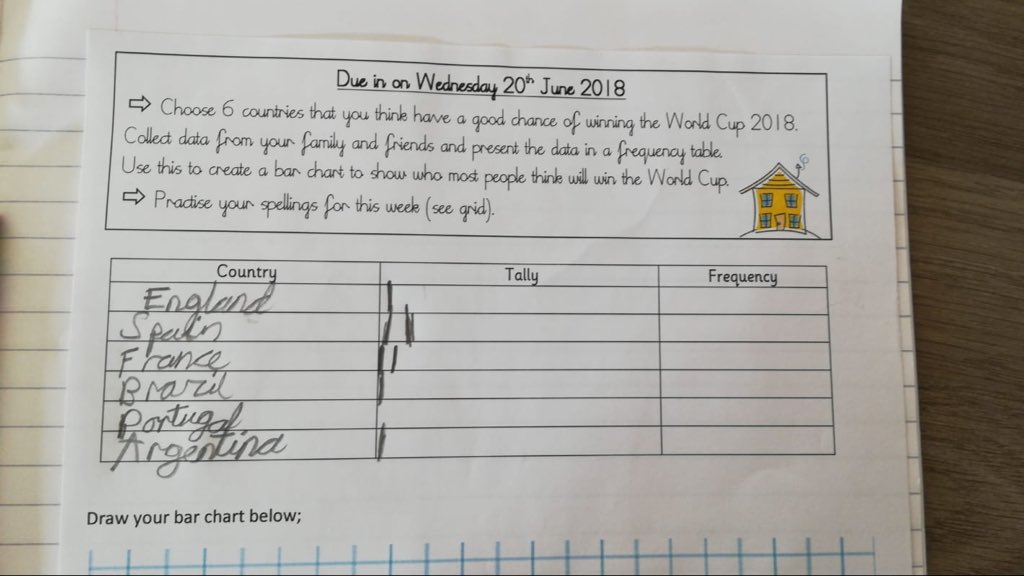 Due in on Wednesday 20th June 2018
⇨ Choose 6 countries that you think have a good chance of winning the World Cup 2018.
Collect data from your family and friends and present the data in a frequency table.
Use this to create a bar chart to show who most people think will win the World Cup.
⇨ Practise your spellings for this week (see grid).
6
Country Tally Frequency
England |
Spain | ||
France | |
Brazil |
Portugal
Argentina |
Draw your bar chart below;